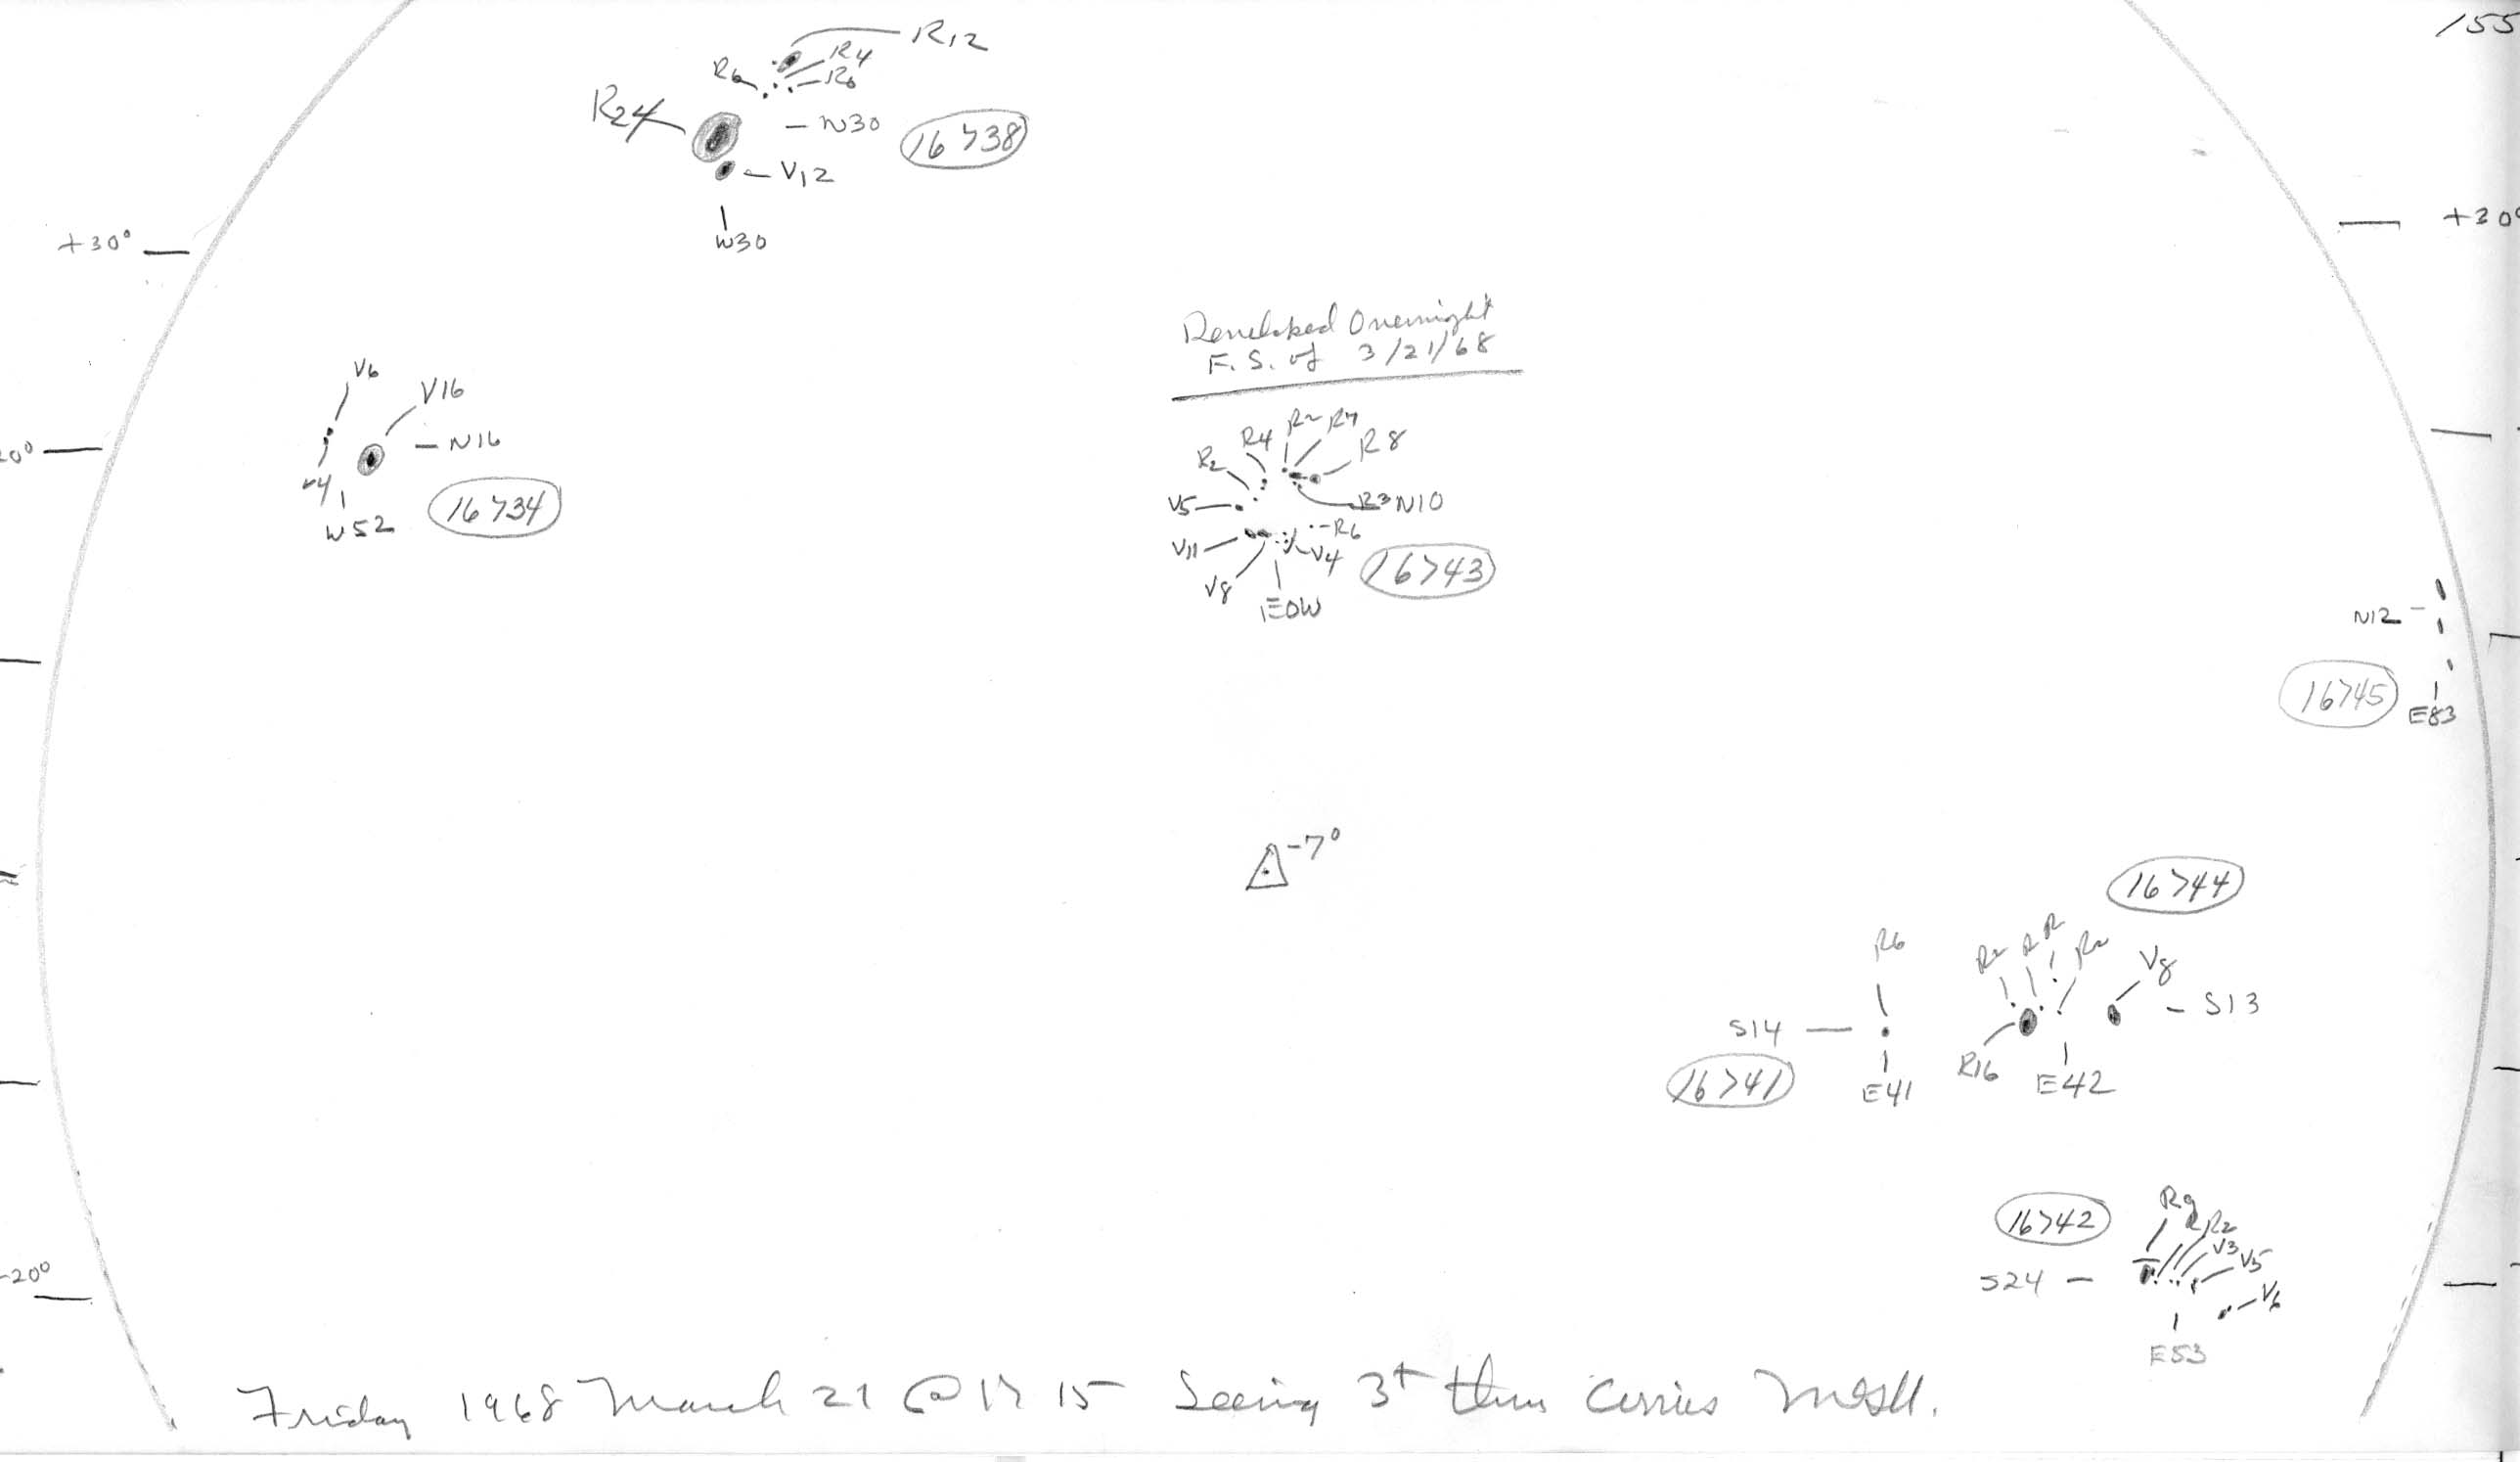 155
R12
R4
R6
R6
R24
N30
16738
V12
W30
+30°
+30°
Developed Overnight
F. S. of 3/21/68
V6
V16
N16
V4
W52
16734
R2
R4
R2
R8
R2
V5
R3 N10
R6
V11
V4
V8
16743
E0W
N12
16745
E83
-7°
16744
R6
R2
R
R
R2
V8
S14
S13
R16
16741
E41
E42
16742
R9
R2
V3
V5
S24
V6
E53
-20°
Friday 1968 March 21 @ 17 15 Seeing 3+ thru Cirrus